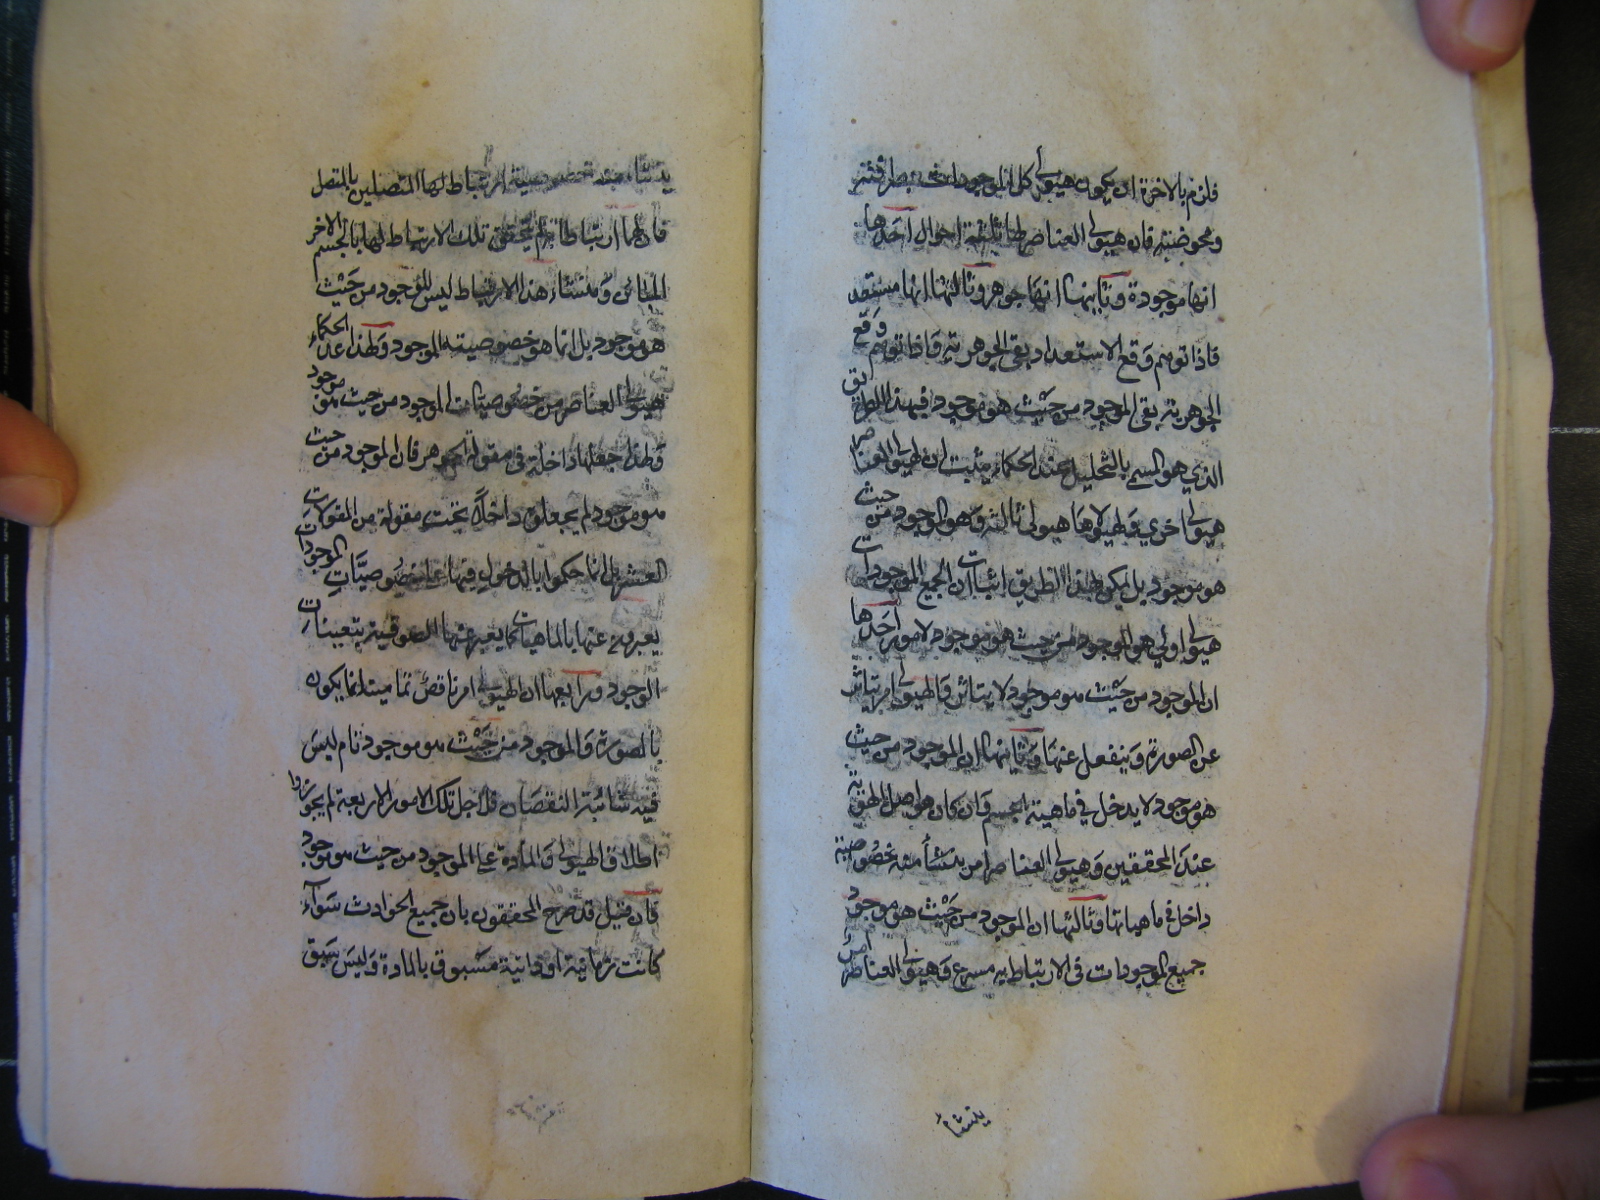 فلزم بالاخرة ان يكون هيولى كل الموجودات
ومحوضته فان هيولى العناصر لها ثلثة احوال احدها
انها موجودة وثانيها انها جوهر وثالثها انها مستعد
فاذا توهم وقع الاستعداد بقى الجوهرية واذا توهم وقع
الجوهرية بقى الموجود من حيث هو موجود فبهذا
الذي هو المسمى بالتحليل عند الحكماء يثبت ان لهيولى العناصر
هيولى اخرى ولهيولاها هيولى ثالثة وهو الموجود من حيث
هو موجود بل يمكن بهذا الطريق اثبات ان الجميع الموجودات
هيولى اولى هو الموجود من حيث هو موجود لامور احدها
ان الموجود من حيث هو موجود لا يتاثر والهيولى امر يتاثر
عن الصورة وينفعل عنها وثانيها ان الموجود من حيث
هو موجود لا يدخل في ماهية الجسم وان كان هو اصل الهوية
عند المحققين وهيولى العناصر امر ينشأ منه خصوصية
داخل في ماهياتها وثالثها ان الموجود من حيث هو موجود
جميع الموجودات في الارتباط به وهيولى العناصر امر
ينشأ
ينشاء منه خصوصية ارتباط لها المتصلين بالمتصل
فان لهما ارتباطا تحقق تلك الارتباط لهما بالجسم الاخر
المبائن ومنشاء هذا الارتباط ليس الموجود من حيث
هو موجود بل انما هو خصوصيته الموجود ولهذا عد الحكماء
هيولى العناصر من خصوصيات الموجود من حيث هو موجود
ولهذا جعلها داخلة في مقولة الجوهر فان الموجود من حيث
هو موجود لم يجعلوه داخلا تحت مقولة من المقولات
العشر بل انما حكموا بالدخول فيها على خصوصيات الموجودات
يعبرون عنها بالماهيات كما يعبر عنها الصوفية بتعينات
الوجود ورابعها ان الهيولى امر ناقص تماميته انما يكون
بالصورة والموجود من حيث هو موجود تام ليس
فيه شائبة النقصان فلاجل تلك الامور الاربعة لم يجوزوا
اطلاق الهيولى والمادة على الموجود من حيث هو موجود
فان قيل قد صرح المحققون بان جميع الحوادث سواء
كانت زمانية او ذاتية مسبوق بالمادة وليس سبق